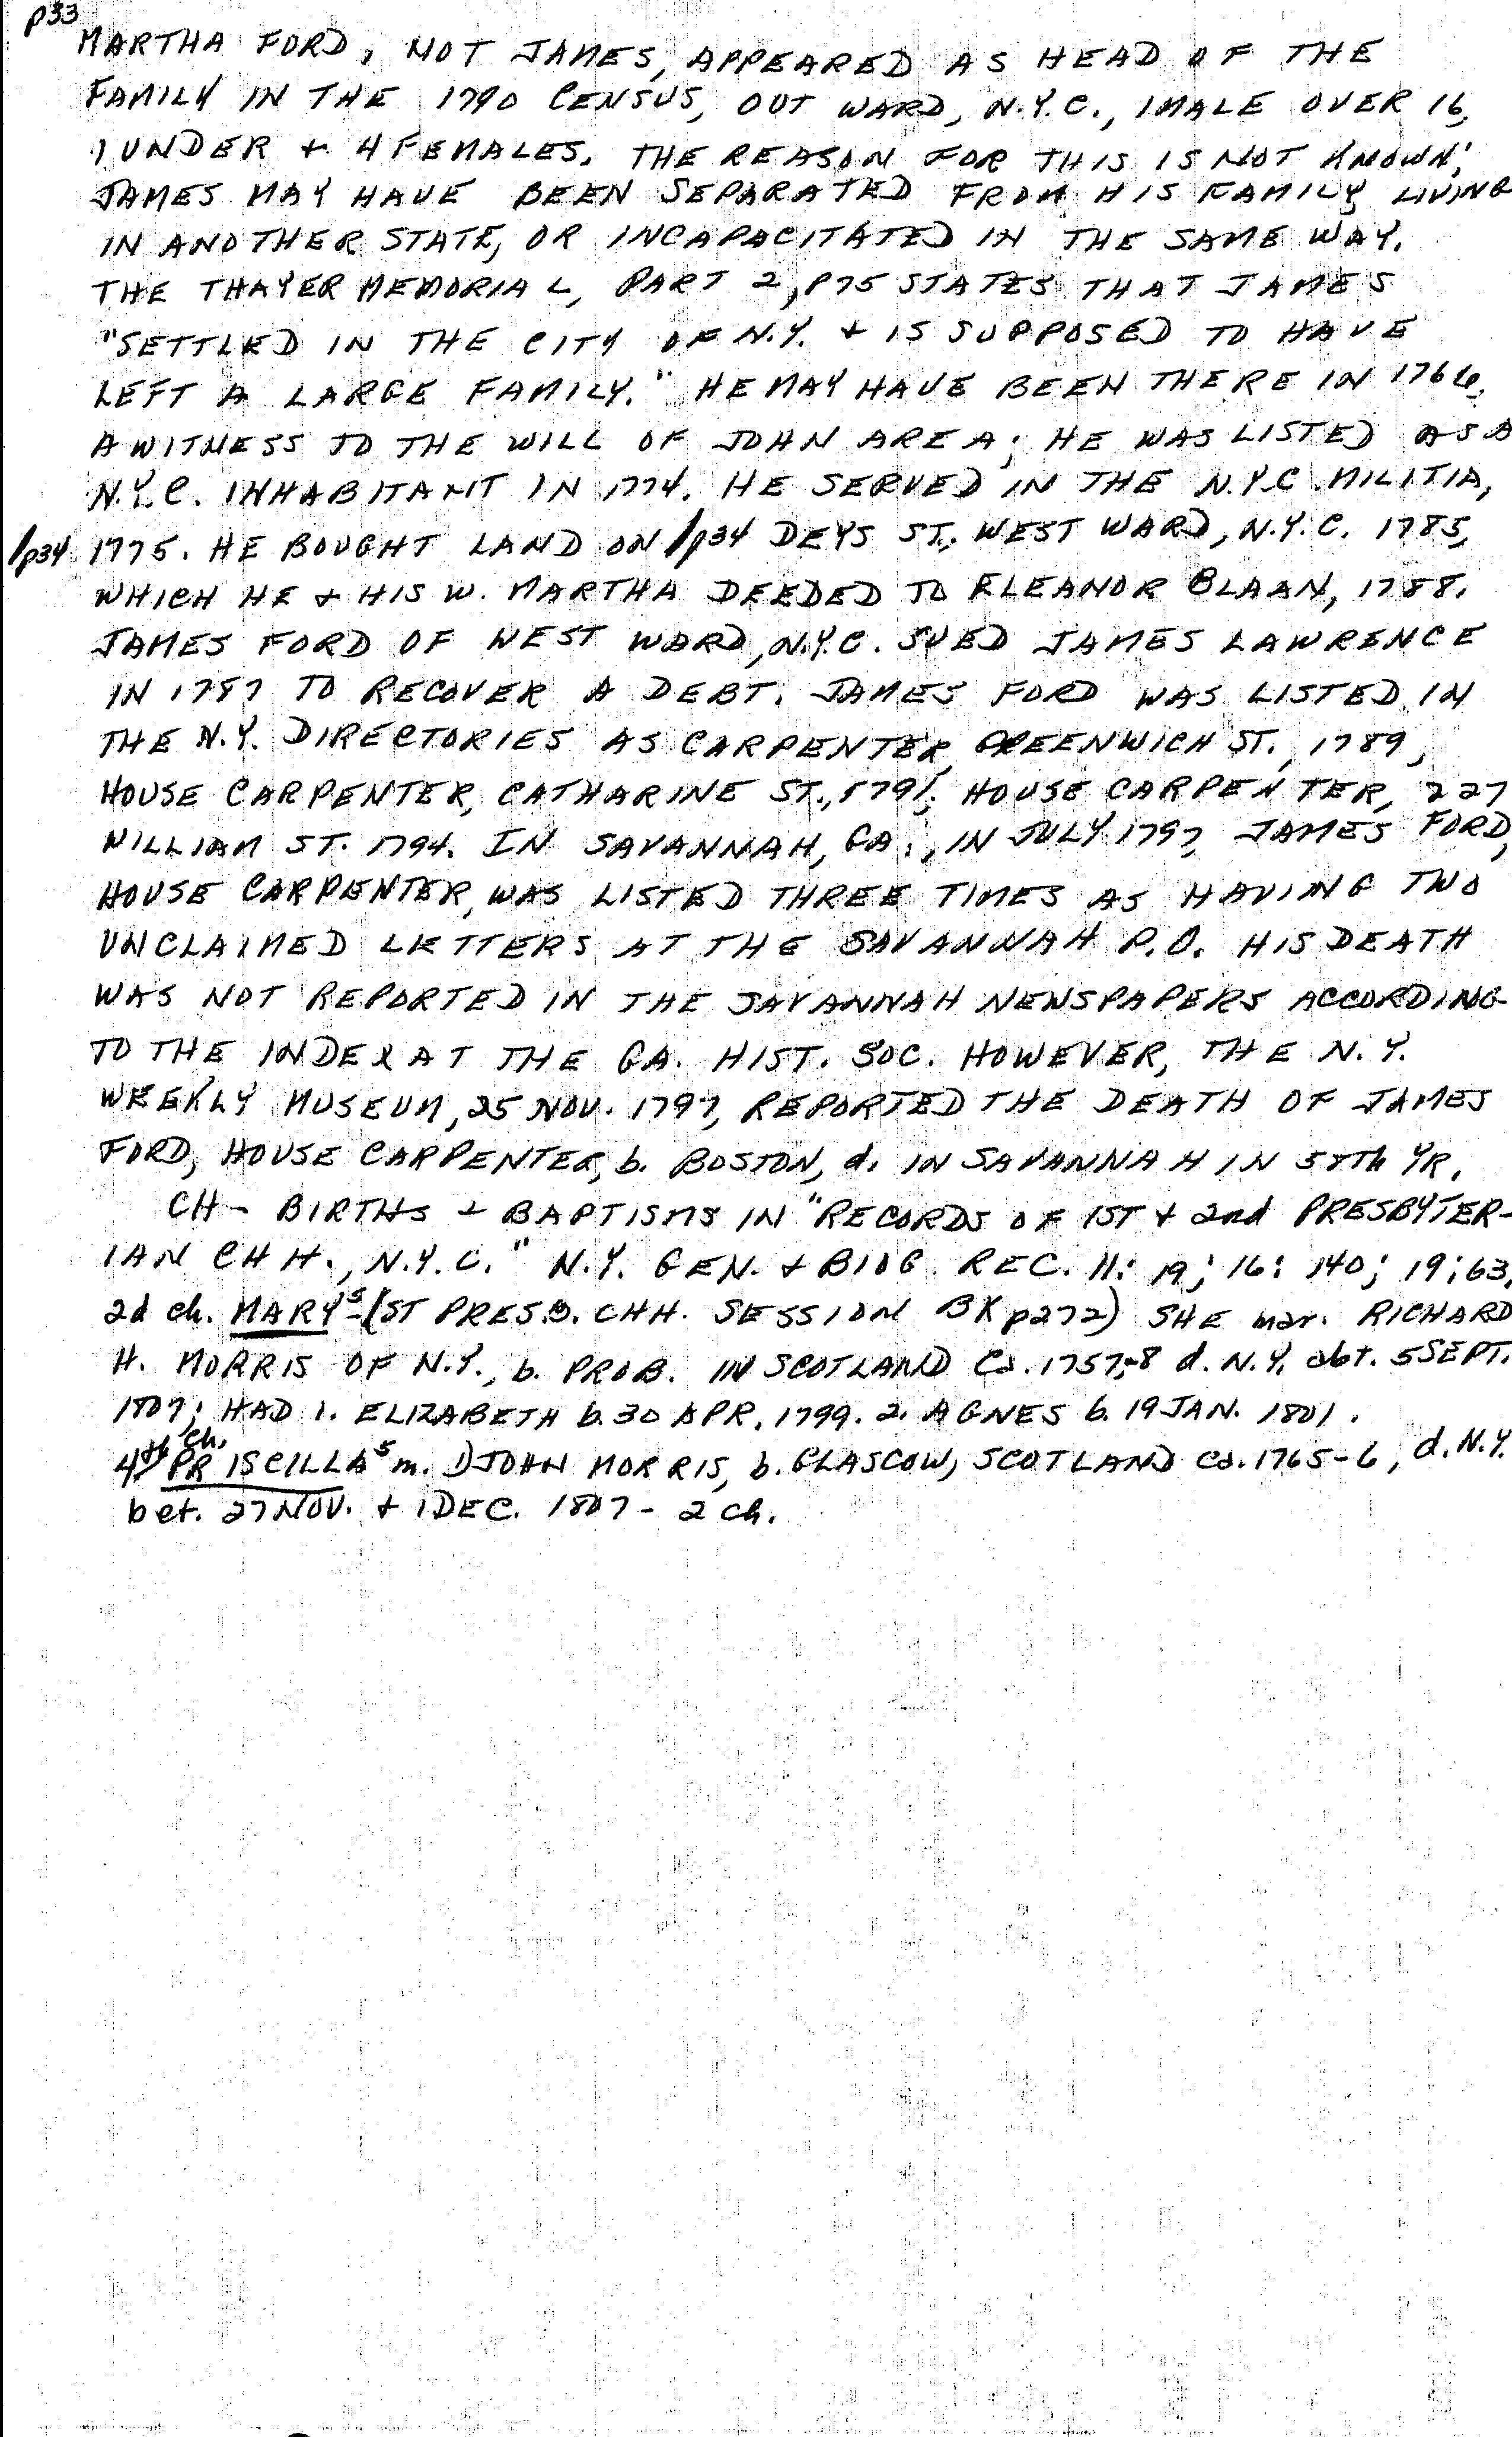 p33
MARTHA FORD, NOT JAMES, APPEARED AS HEAD OF THE
FAMILY IN THE 1790 CENSUS, OUT WARD, N.Y.C., 1 MALE OVER 16,
1 UNDER + 4 FEMALES. THE REASON FOR THIS IS NOT KNOWN;
JAMES MAY HAVE BEEN SEPARATED FROM HIS FAMILY, LIVING
IN ANOTHER STATE, OR INCAPACITATED IN THE SAME WAY.
THE THAYER MEMORIAL, PART 2, P75 STATES THAT JAMES
"SETTLED IN THE CITY OF N.Y. + IS SUPPOSED TO HAVE
LEFT A LARGE FAMILY." HE MAY HAVE BEEN THERE IN 1766,
A WITNESS TO THE WILL OF JOHN AREA; HE WAS LISTED AS A
N.Y.C. INHABITANT IN 1774. HE SERVED IN THE N.Y.C. MILITIA,
/p34 1775. HE BOUGHT LAND ON /p34 DEYS ST., WEST WARD, N.Y.C. 1785,
WHICH HE + HIS W. MARTHA DEEDED TO ELEANOR BLAAN, 1788.
JAMES FORD OF WEST WARD, N.Y.C. SUED JAMES LAWRENCE
IN 1787 TO RECOVER A DEBT. JAMES FORD WAS LISTED IN
THE N.Y. DIRECTORIES AS CARPENTER, GREENWICH ST., 1789,
HOUSE CARPENTER, CATHARINE ST., 1791; HOUSE CARPENTER, 227
WILLIAM ST. 1794. IN SAVANNAH, GA., IN JULY 1797, JAMES FORD,
HOUSE CARPENTER, WAS LISTED THREE TIMES AS HAVING TWO
UNCLAIMED LETTERS AT THE SAVANNAH P.O. HIS DEATH
WAS NOT REPORTED IN THE SAVANNAH NEWSPAPERS ACCORDING
TO THE INDEX AT THE GA. HIST. SOC. HOWEVER, THE N.Y.
WEEKLY MUSEUM, 25 NOV. 1797, REPORTED THE DEATH OF JAMES
FORD, HOUSE CARPENTER, b. BOSTON, d. IN SAVANNAH IN 58th YR.
CH - BIRTHS + BAPTISMS IN "RECORDS OF 1ST + 2nd PRESBYTER-
IAN CHH., N.Y.C." N.Y. GEN. + BIOG. REC. 11: 19; 16: 140; 19:63,
2d ch. MARY⁵ - (1ST PRESB. CHH. SESSION BK p272) SHE mar. RICHARD
H. MORRIS OF N.Y., b. PROB. IN SCOTLAND Ca. 1757-8 d. N.Y. abt. 5 SEPT.
1807; HAD 1. ELIZABETH b. 30 APR. 1799. 2. AGNES b. 19 JAN. 1801.
4th ch. PRISCILLA⁵ m. 1) JOHN MORRIS, b. GLASCOW, SCOTLAND ca. 1765-6, d. N.Y.
bet. 27 NOV. + 1 DEC. 1807 - 2 ch.